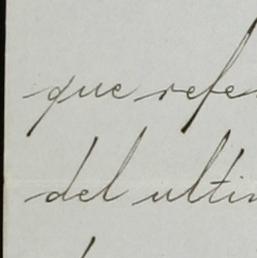 que refe
del ultim